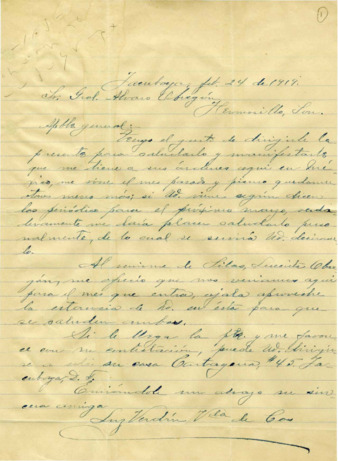 1
Tacubaya, feb. 24 de 1919.
Sr. Gral. Alvaro Obregón
Hermosillo, Son.
Apble general:
Tengo el gusto de dirigirle la
presente para saludarlo y manifestarle
que me tiene a sus órdenes aquí en Mé-
xico, me vine el mes pasado y pienso quedarme
otros meses mas; si Ud. viene según dicen
los periódicos para el próximo marzo, verda
deramente me daría placer saludarlo perso
nalmente, de lo cual se servirá Ud. decirme
lo.
Al venirme de Lucesita Obre
gón, me ofreció que nos veríamos aquí
para el mes que entra, ojalá aproveche
la estancia de Ud. en ésta para que
se saluden ambos.
Si le llega la pte y me favore
ce con su contestación, puede Ud. dirigir
se a su casa Cartagena, #45. Ta
cubaya, D. F.
Enviándole un abrazo su sin
cera amiga
Luz Verdín Vda de Cos